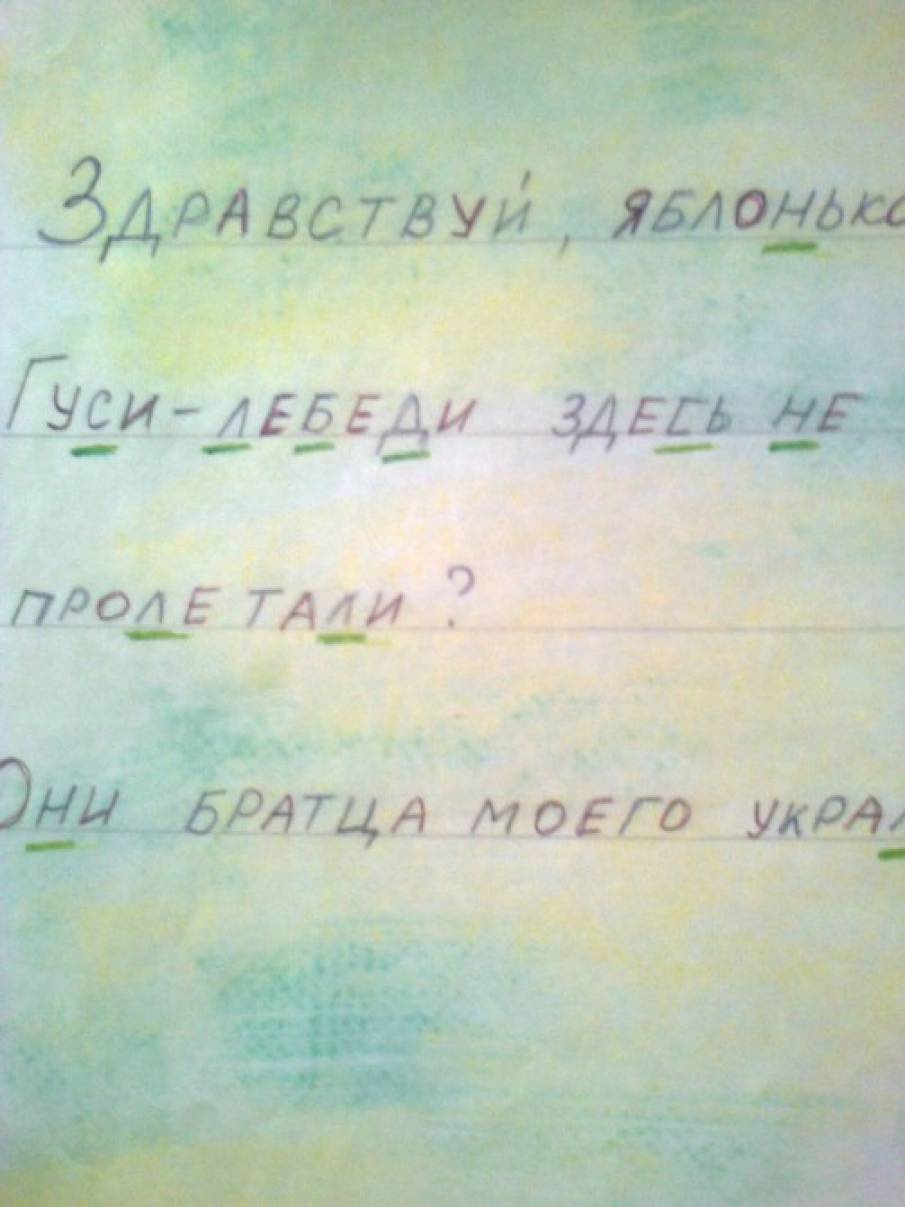 Здравствуй, яблонько
Гуси-лебеди здесь не
пролетали?
Они братца моего укра